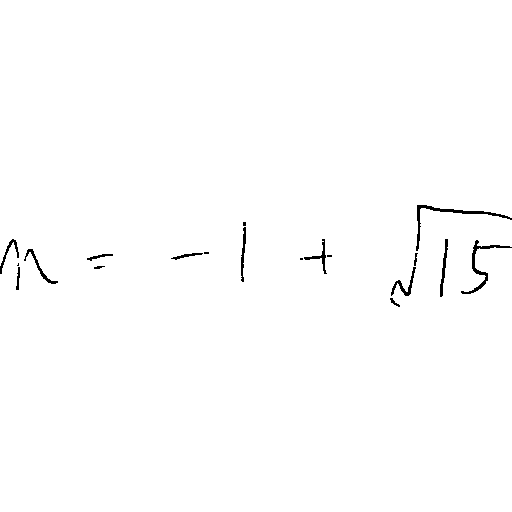 n = -1 + √15